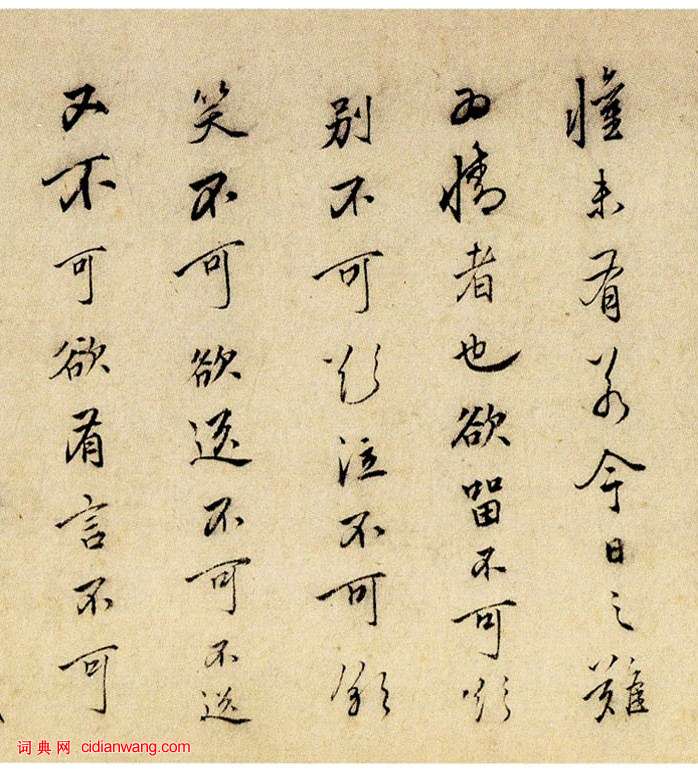 懽未有若今日之難
為情者也欲留不可欲
别不可欲泣不可欲
笑不可欲送不可不送
又不可欲有言不可
词典网 cidianwang.com